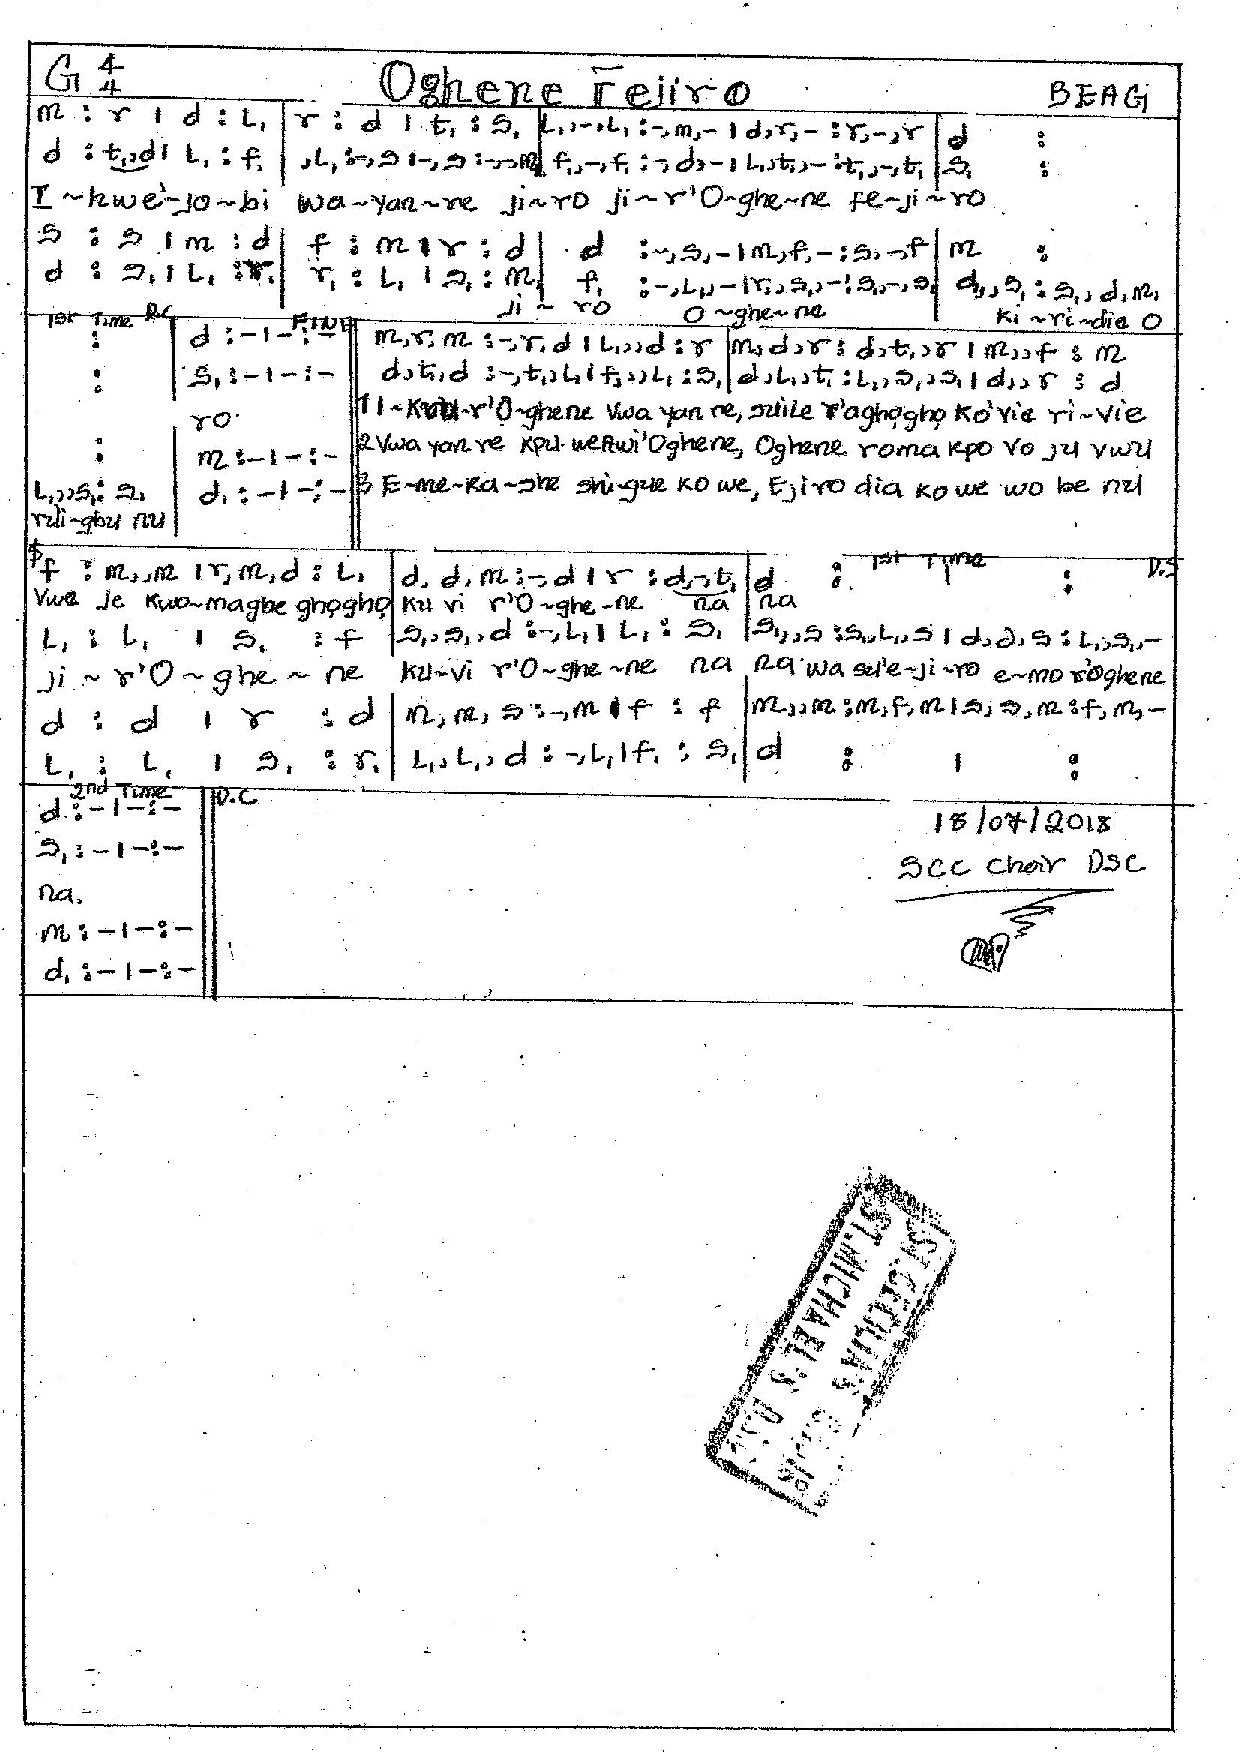 G 4/4 Oghene Fejiro BEAG
m : r | d : l, | r : d | t, : s, | l,,-,l, :-,m,- | d,r,- :r,-,r | d :
d : t,,d | l, : f, | ,l, :-,s |-,s :-,m | f,,-,f, :-,d,- | l,,t,,- :t,,-,t, | s, :
I~kwe'-jo~bi wa~yan~re ji~ro ji~r'O~ghe~ne fe~ji~ro
s : s | m : d | f : m | r : d | d :-,s,- | m,f,- :s,-,f | m :
d : s, | l, : r, | r, : l, | s, : m, | f, :-,l,,- | r,,s,,- :s,,-,s, | d,,s, : s,,d,m,
ji ~ ro O ~ghe~ne ki ~ri~die O
1st Time D.C Fine
: d :-|-:- m,r,m :-,r,d | l,,,d : r | m,d,r : d,t,,r | m,,f : m
: s, :-|-:- d,t,,d :-,t,,l, | f,,,l, : s, | d,l,,t, : l,,s,,s, | d,,r : d
ro 1 I~ r'O~ghene vwa yan re, suile r'aghọghọ ko'vie ri~vie
: m :-|-:- 2 Vwa yan re kpu Oghene, Oghene roma kpo vo ju vwu
l,,,s, : s, d, :-|-:- 3 E~me~ra~she shi~gue ko we, Ejiro dia ko we wo be nu
ruli~gbu nu
1st Time D.S
f : m,,m | r,m,d : l, | d, d,m :-,d | r : d,-,t, | d : :
Vwe je kwo~magbe ghọghọ ku vi r'O~ghe~ne na na
l, : l, | s, : f | s,,s,,d :-,l, | l, : s, | s,,,s :s,l,s | d,d,s : l,,s,-
ji ~ r'O ~ ghe ~ ne ku~vi r'O~ghe~ne na na wa su'e~ji~ro e~mo r'Oghene
d : d | r : d | m, m, s :-,m | f : f | m,,m :m,f,m | s,s,m :f,m,-
l, : l, | s, : r, | l,,l,,d :-,l, | f, : s, | d : | :
2nd Time D.C
d :-|-:- 18/07/2018
s, :-|-:- SCC Choir DSC
na.
m :-|-:-
d, :-|-:-
ST. CECILIA'S
ST. MICHAEL'S